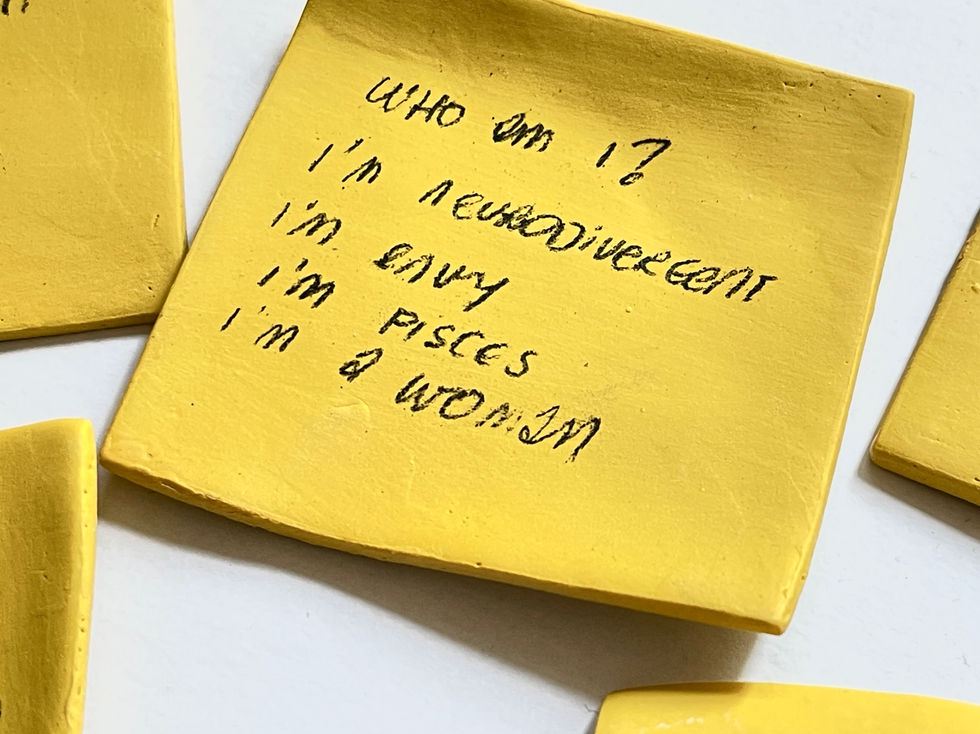 WHO am i?
i'm neurodivergent
i'm envy
i'm PISCES
i'm a WOMAN